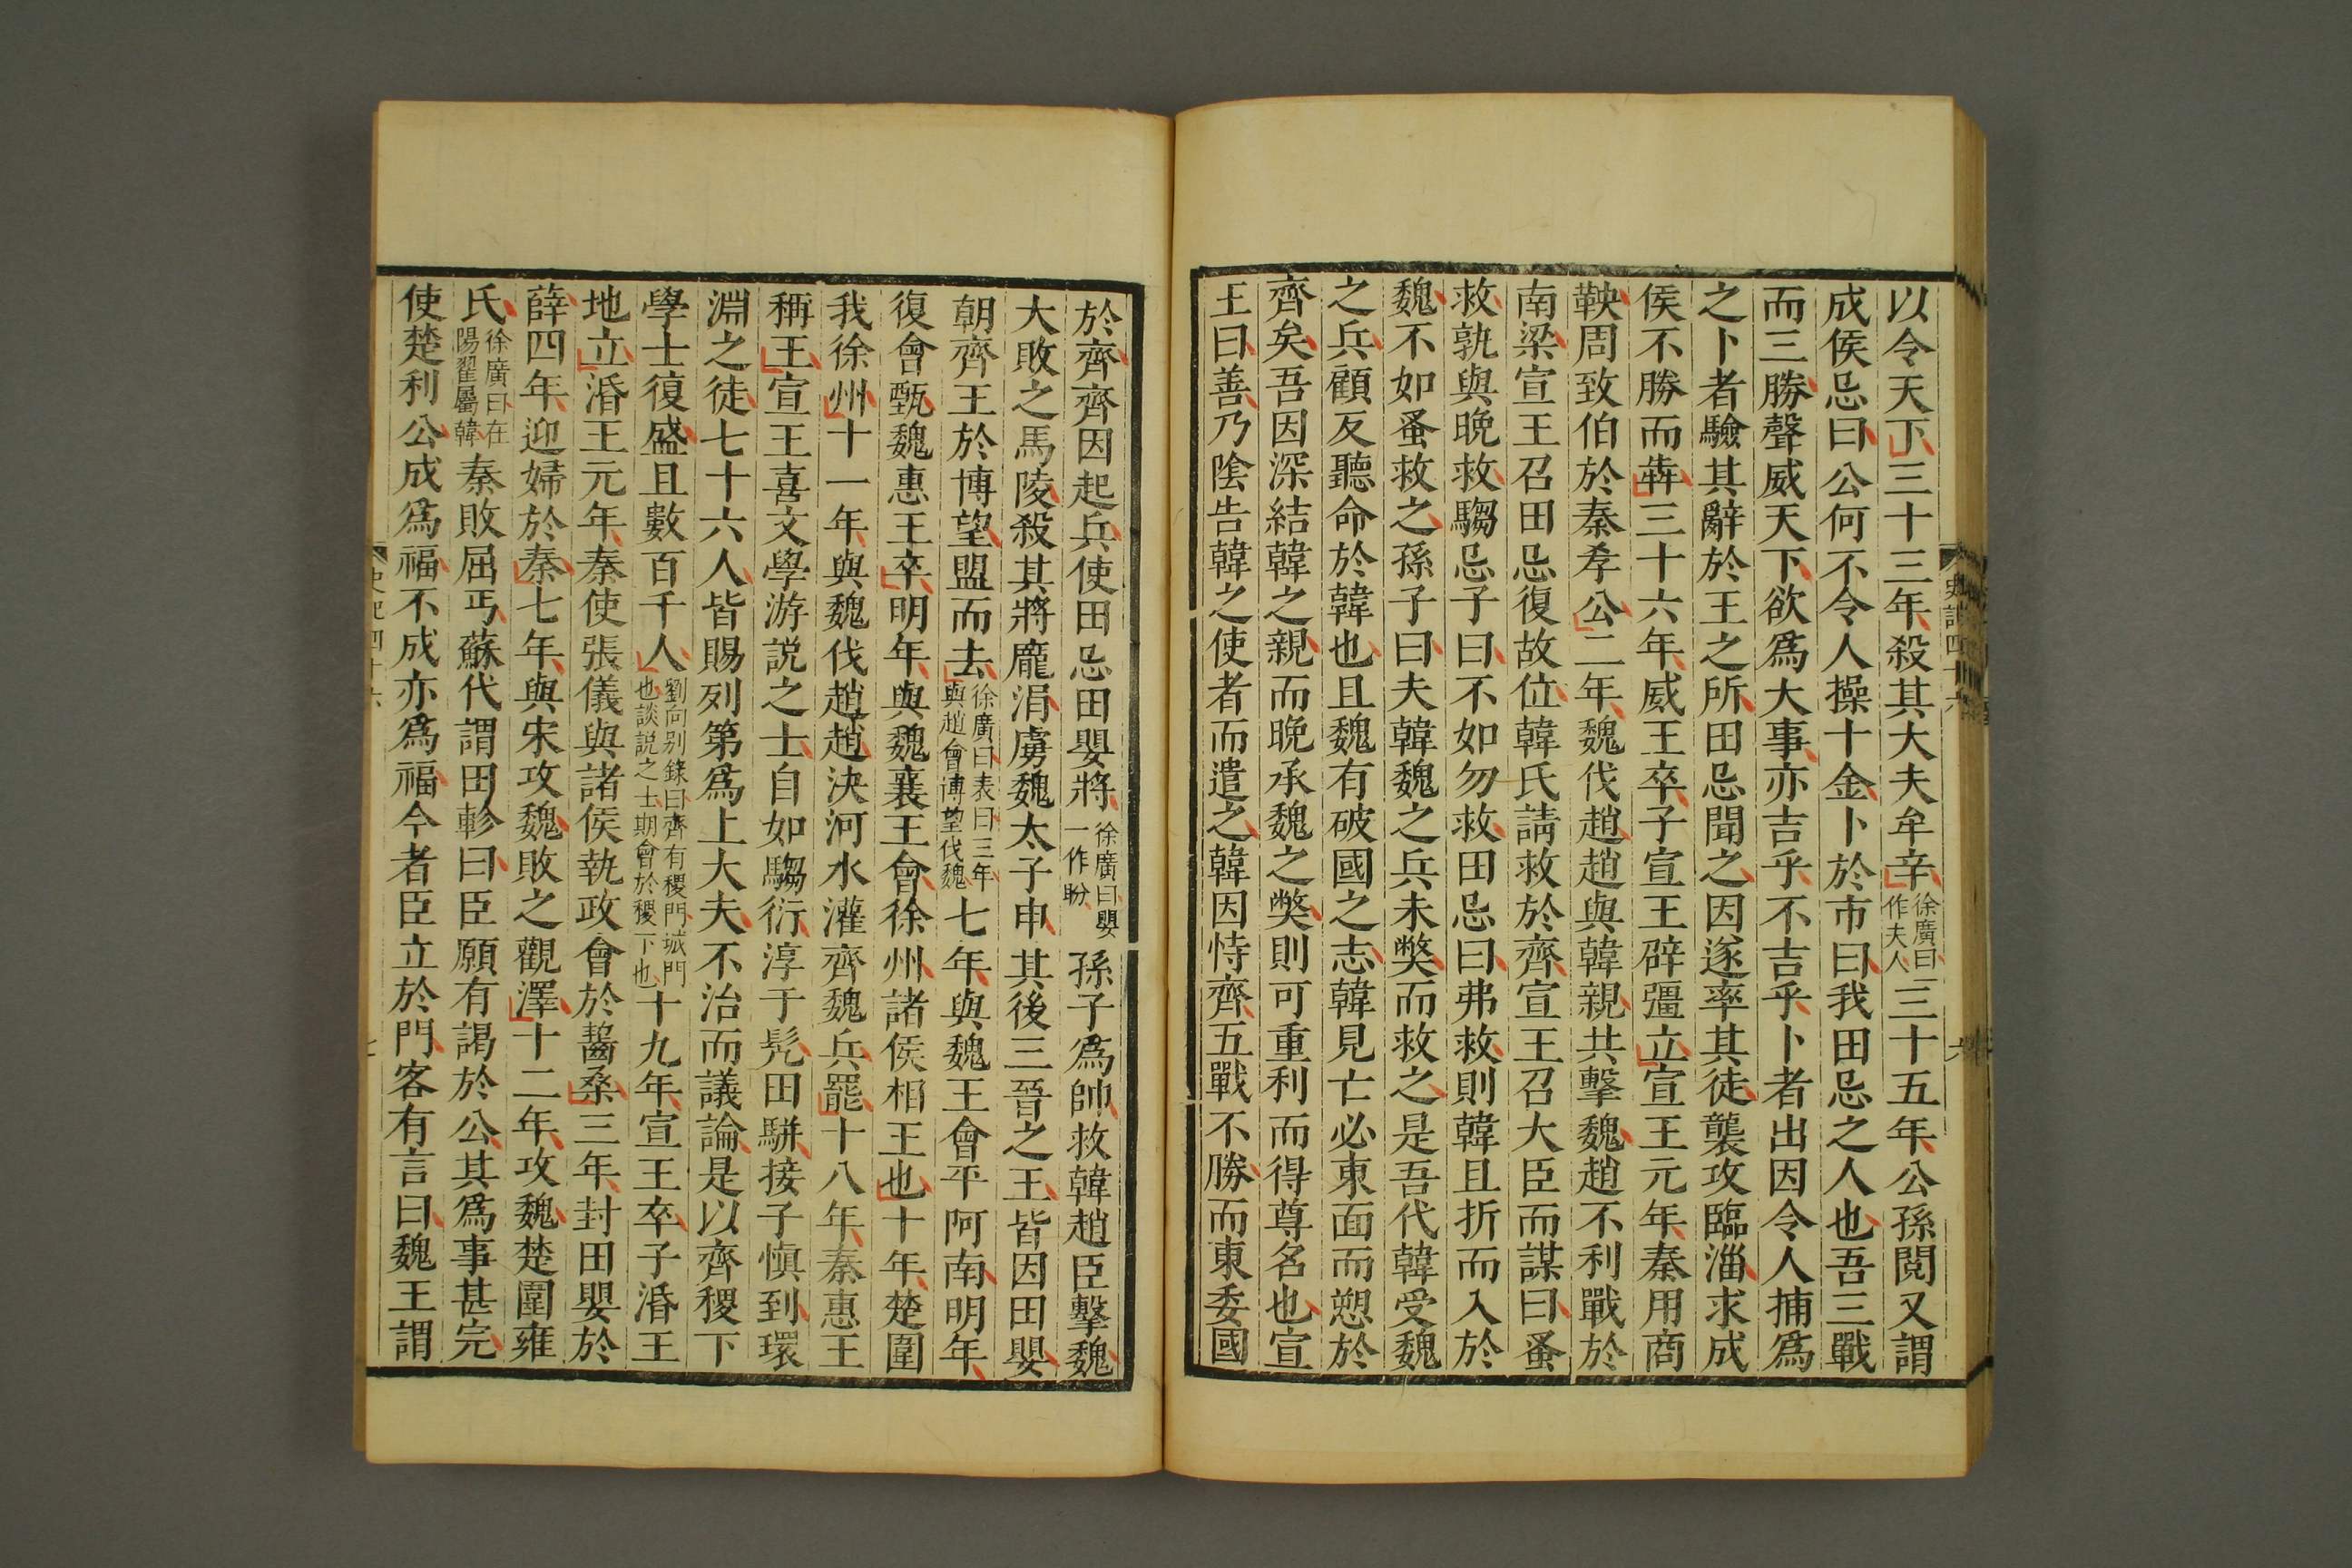 以令天下三十三年殺其大夫牟辛徐廣曰一作夫人三十五年公孫閱又謂
成侯忌曰公何不令人操十金卜於市曰我田忌之人也吾三戰
而三勝聲威天下欲爲大事亦吉乎不吉乎卜者出因令人捕爲
之卜者驗其辭於王之所田忌聞之因遂率其徒襲攻臨淄求成
侯不勝而犇三十六年威王卒子宣王辟彊立宣王元年秦用商
鞅周致伯於秦孝公二年魏伐趙趙與韓親共擊魏趙不利戰於
南梁宣王召田忌復故位韓氏請救於齊宣王召大臣而謀曰蚤
救孰與晚救騶忌子曰不如勿救田忌曰弗救則韓且折而入於
魏不如蚤救之孫子曰夫韓魏之兵未獘而救之是吾代韓受魏
之兵顧反聽命於韓也且魏有破國之志韓見亡必東面而愬於
齊矣吾因深結韓之親而晚承魏之獘則可重利而得尊名也宣
王曰善乃陰告韓之使者而遣之韓因恃齊五戰不勝而東委國
於齊齊因起兵使田忌田嬰將徐廣曰嬰一作盼孫子爲帥救韓趙臣擊魏
大敗之馬陵殺其將龐涓虜魏太子申其後三晉之王皆因田嬰
朝齊王於博望盟而去徐廣曰表曰三年與趙會博望伐魏七年與魏王會平阿南明年
復會甄魏惠王卒明年與魏襄王會徐州諸侯相王也十年楚圍
我徐州十一年與魏伐趙趙決河水灌齊魏兵罷十八年秦惠王
稱王宣王喜文學游説之士自如騶衍淳于髡田駢接子慎到環
淵之徒七十六人皆賜列第爲上大夫不治而議論是以齊稷下
學士復盛且數百千人劉向别錄曰齊有稷門城門也談説之士期會於稷下也十九年宣王卒子湣王
地立湣王元年秦使張儀與諸侯執政會於齧桑三年封田嬰於
薛四年迎婦於秦七年與宋攻魏敗之觀澤十二年攻魏楚圍雍
氏徐廣曰在陽翟屬韓秦敗屈丐蘇代謂田軫曰臣願有謁於公其爲事甚完
使楚利公成爲福不成亦爲福今者臣立於門客有言曰魏王謂
史記四十六
七